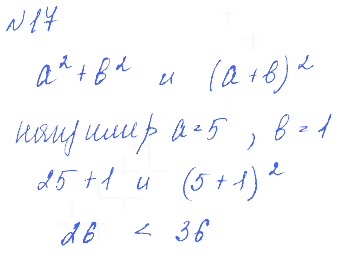 №17
a² + в² и (a + в)²
например a = 5, в = 1
25 + 1 и (5 + 1)²
26 < 36